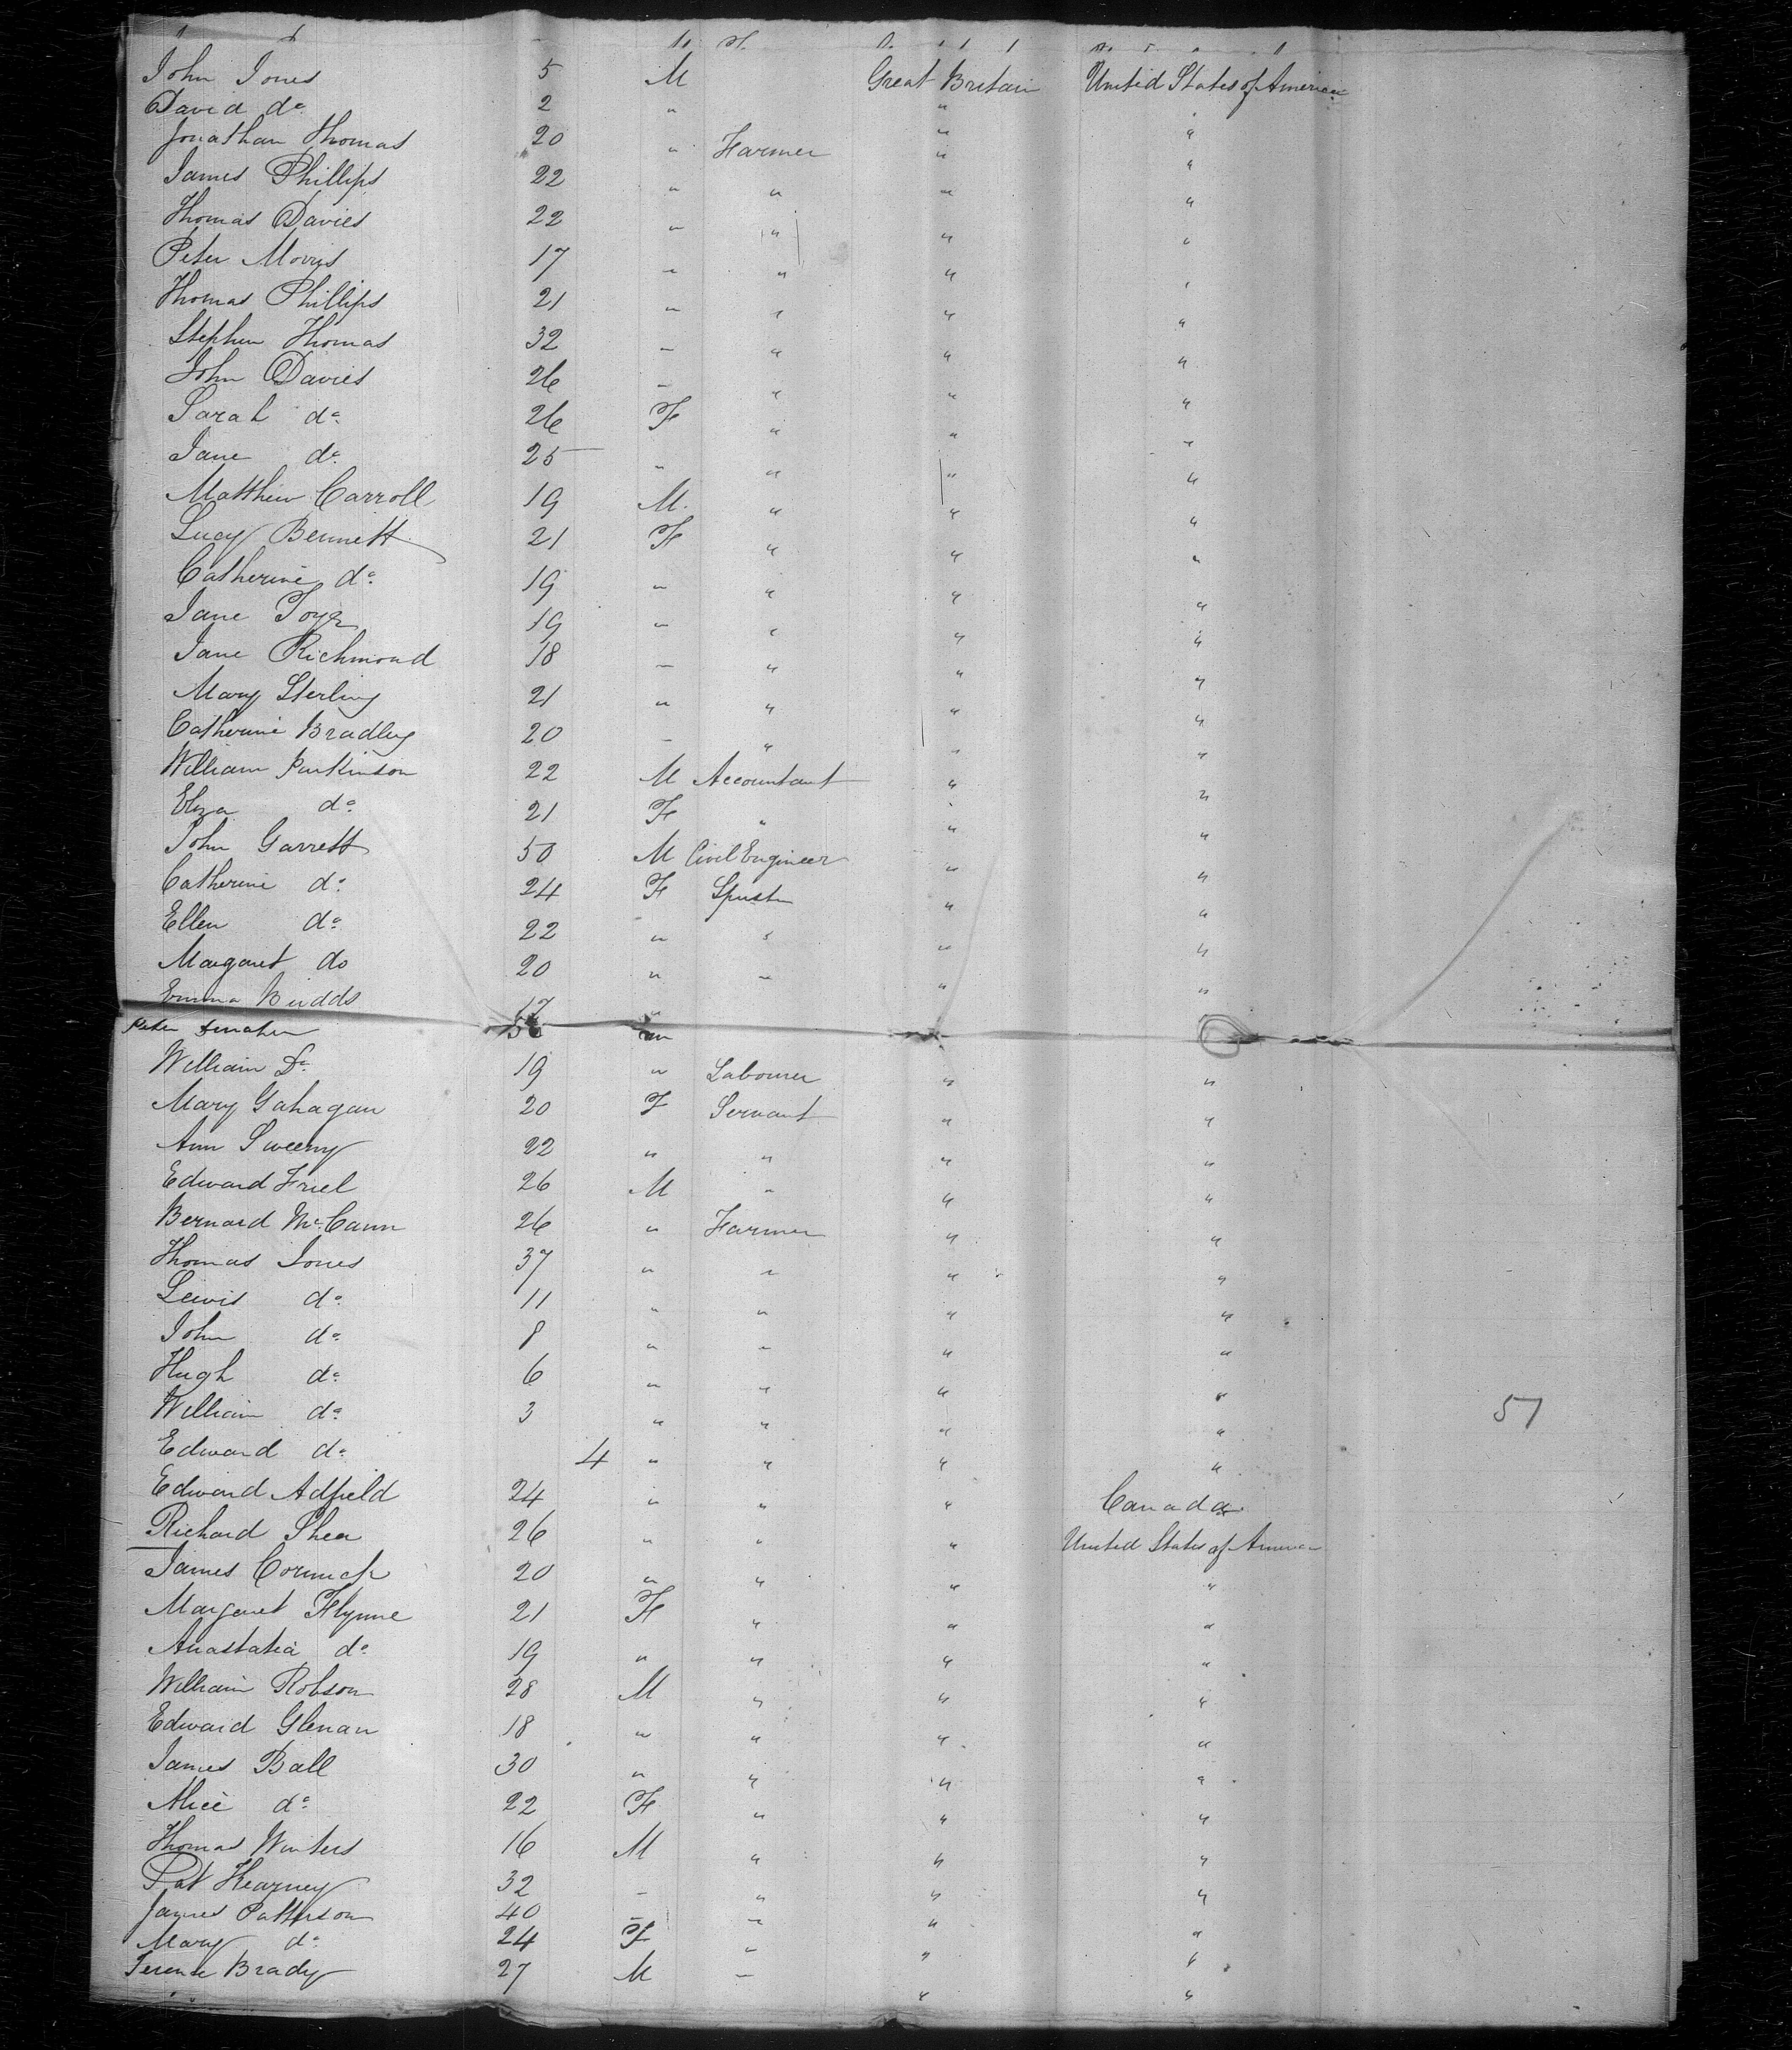 John Jones 5 M Great Britain United States of America
David do 2 " "
Jonathan Thomas 20 " Farmer " "
James Phillips 22 " " " "
Thomas Davies 22 " " " "
Peter Morris 17 " " " "
Thomas Phillips 21 " " " "
Stephen Thomas 32 " " " "
John Davies 26 " " " "
Sarah do 26 F " " "
Jane do 25 " " " "
Matthew Carroll 19 M. " " "
Lucy Bennett 21 F " " "
Catherine do 19 " " " "
Jane 19 " " " "
Jane Richmond 18 " " " "
Mary Sterling 21 " " " "
Catherine Bradley 20 " " " "
William Parkinson 22 M Accountant " "
Eliza do 21 F " " "
John Garrett 50 M Civil Engineer " "
Catherine do 24 F Spinstr " "
Ellen do 22 " " " "
Margaret do 20 " " " "
Emma Budds 17 "
Peter "
William Do 19 " Labourer " "
Mary Gahagan 20 F Servant " "
Ann Sweeny 22 " " " "
Edward Friel 26 M " " "
Bernard McCann 26 " Farmer " "
Thomas Jones 37 " " " "
Lewis do 11 " " " "
John do 8 " " " "
Hugh do 6 " " " "
William do 3 " " " " 51
Edward do 4 " " " "
Edward Adfield 24 " " " Canada
Richard Shea 26 " " " United States of America
James Cormick 20 " " " "
Margaret Flynne 21 F " " "
Anastatia do 19 " " " "
William Robson 28 M " " "
Edward Glenan 18 " " " "
James Ball 30 " " " "
Alice do 22 F " " "
Thomas Winters 16 M " " "
Pat Kearney 32 " " " "
James Patterson 40 " " " "
Mary do 24 F " " "
Terence Brady 27 M " " "